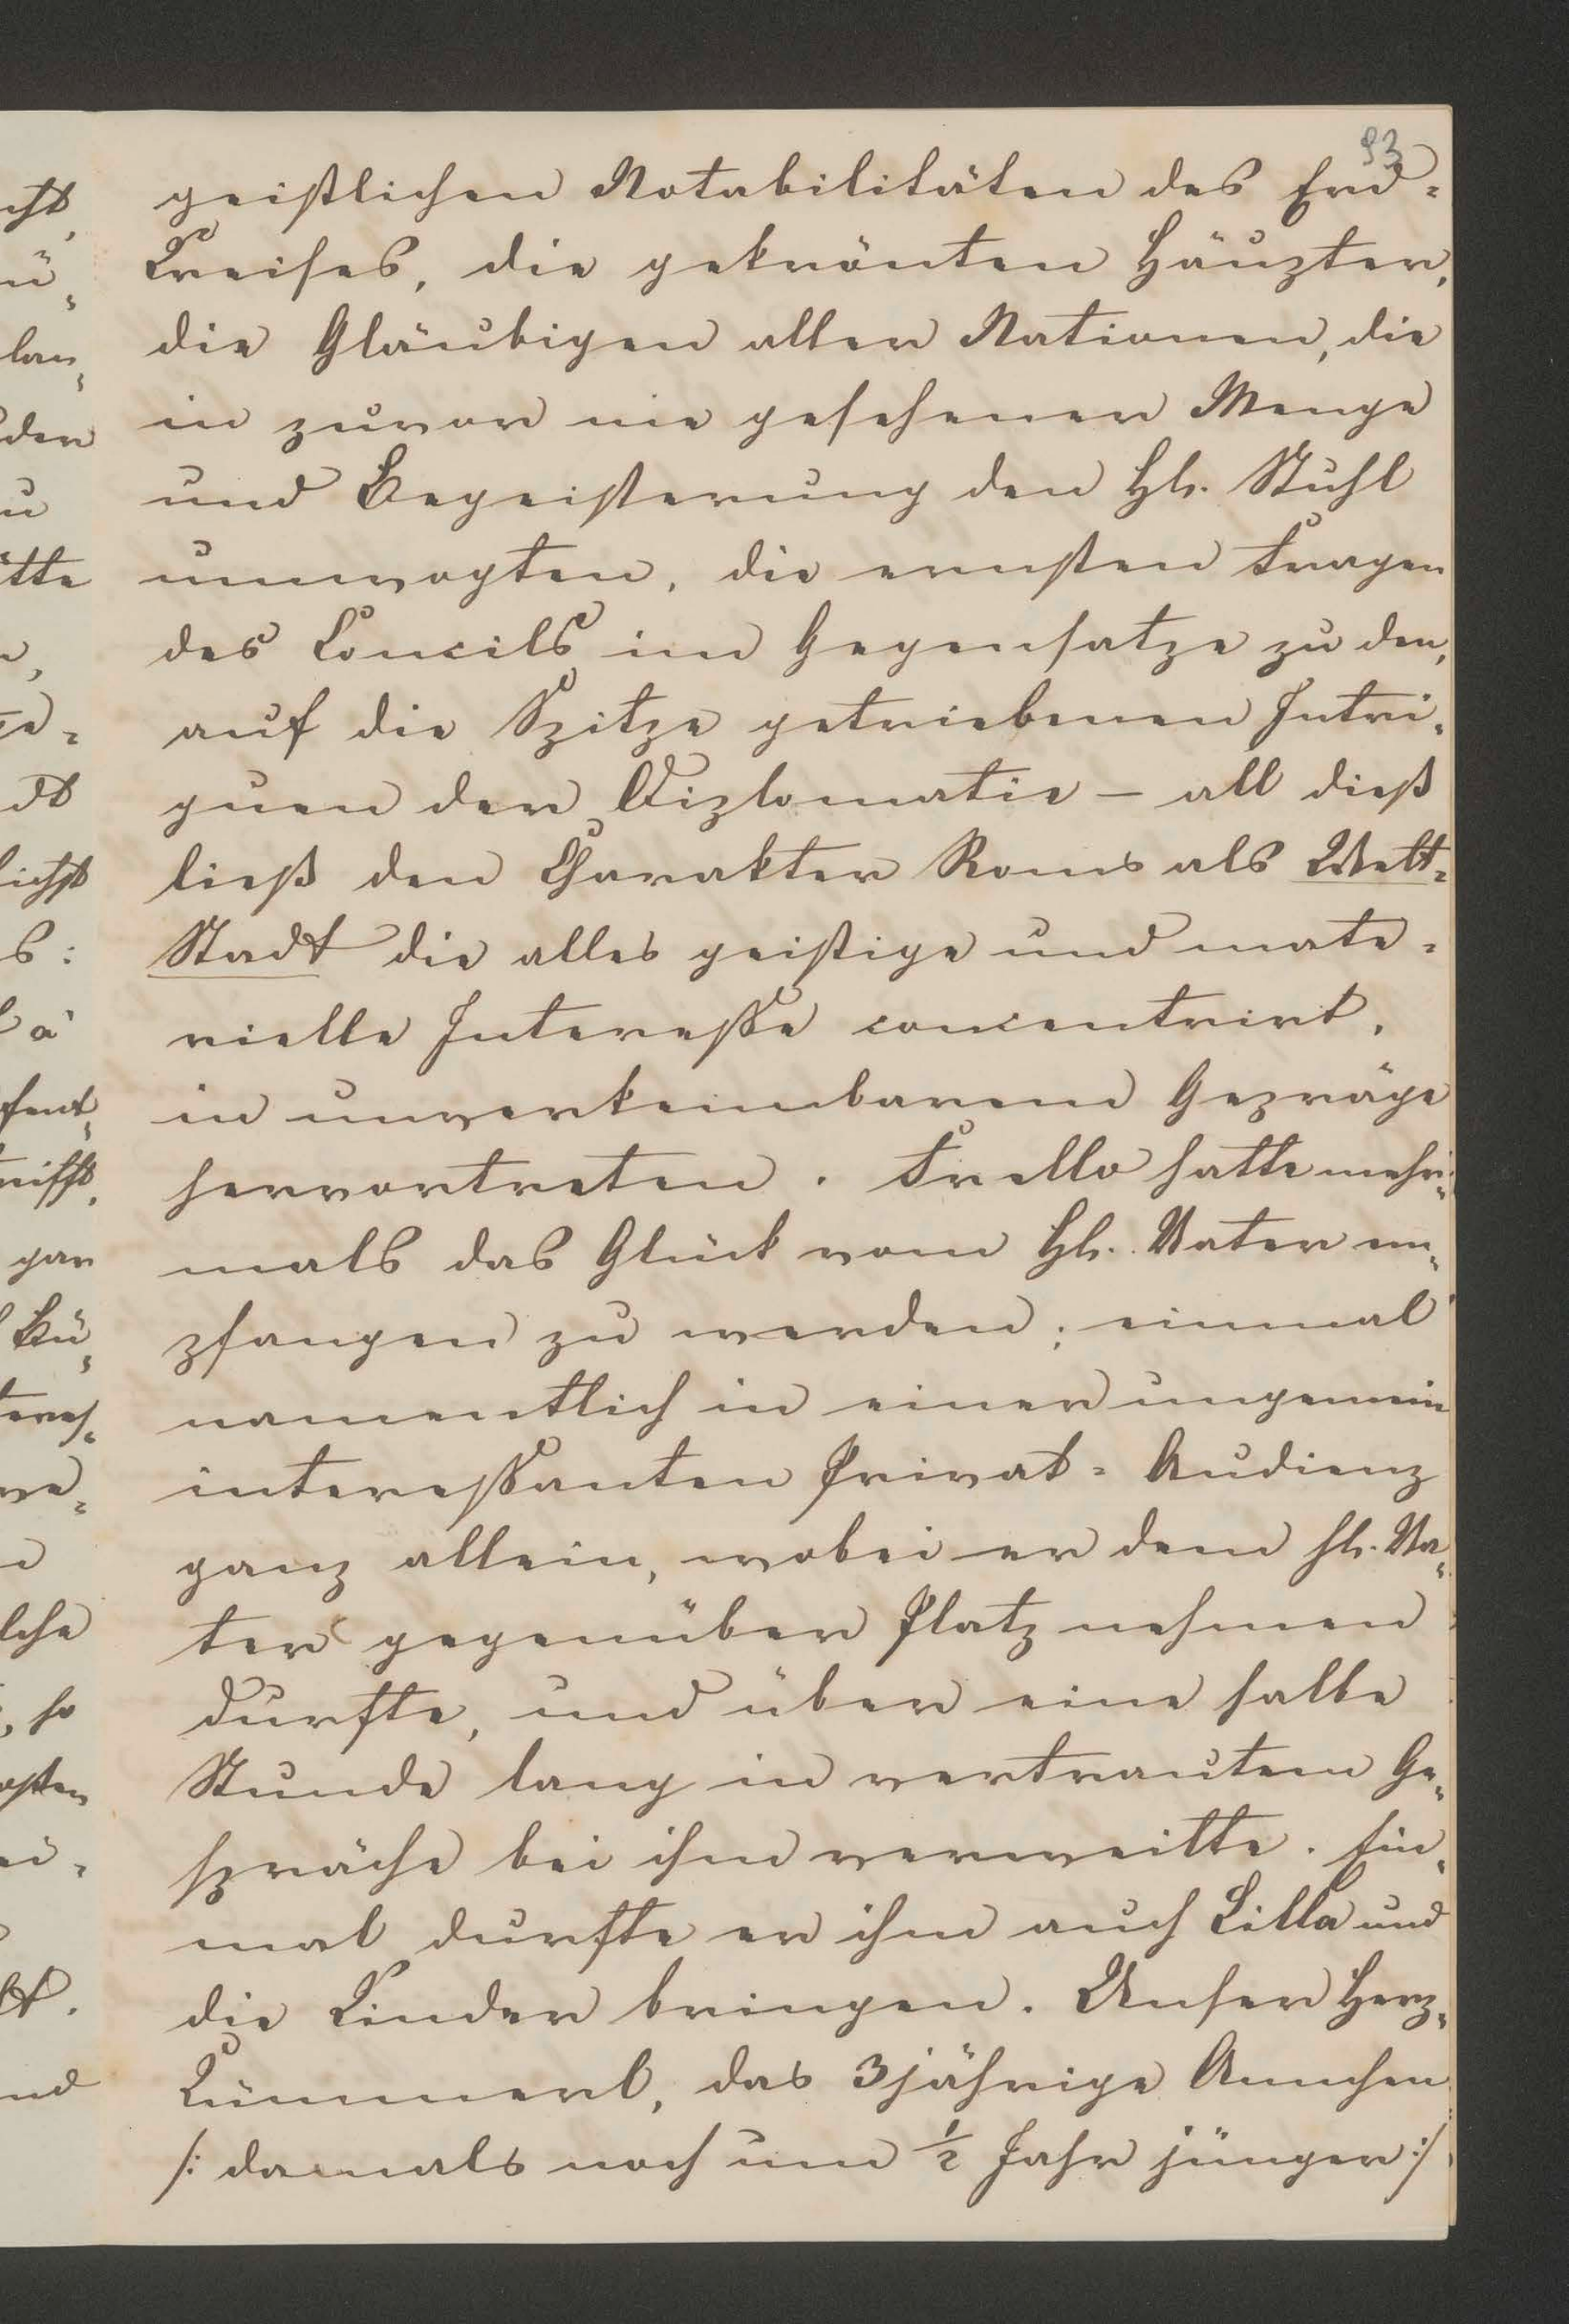 93
geistlichen Notabilitäten des Erd-
Kreises, die gekrönten Häupter,
die Gläubigen aller Nationen, die
in zuvor nie gesehener Menge
und Begeisterung den Hl. Stuhl
umwogten, die ernsten Fragen
des Concils im Gegensatze zu den,
auf die Spitze getriebenen Intri-
guen der Diplomatie – all dieß
ließ den Charakter Roms als Welt-
Stadt die alles geistige und mate-
rielle Interesse concentrirt,
in unverkennbarem Gepräge
hervortreten. Trello hatte mehr-
mals das Glück vom Hl. Vater em-
pfangen zu werden; einmal
namentlich in einer ungemein
interessanten Privat-Audienz
ganz allein, wobei er dem hl. Va-
ter gegenüber Platz nehmen
durfte, und über eine halbe
Stunde lang in vertrautem Ge-
spräche bei ihm verweilte. Ein-
mal durfte er ihm auch Lilla und
die Kinder bringen. Unser Herz-
Kümmerl, das 3jährige Annchen
/: damals noch um ½ Jahr jünger :/